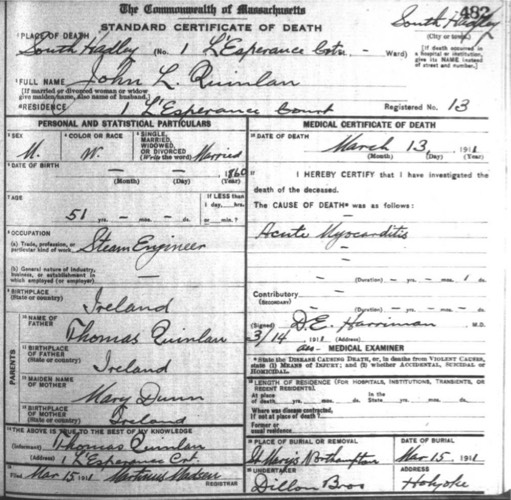 The Commonwealth of Massachusetts
482
STANDARD CERTIFICATE OF DEATH
South Hadley
(City or town.)
1 PLACE OF DEATH
South Hadley (No. 1 L'Esperance Crtn. - Ward)
[If death occurred in a hospital or institution, give its NAME instead of street and number.]
2 FULL NAME John L. Quinlan
[If married or divorced woman or widow give maiden name, also name of husband.]
RESIDENCE L'Esperance Court Registered No. 13
PERSONAL AND STATISTICAL PARTICULARS
3 SEX
M.
4 COLOR OR RACE
W.
5 SINGLE, MARRIED, WIDOWED, OR DIVORCED
(Write the word) Married
6 DATE OF BIRTH
1860
(Month) (Day) (Year)
7 AGE
51 yrs. - mos. - ds.
If LESS than
1 day, hrs.
or min.?
8 OCCUPATION
(a) Trade, profession, or particular kind of work
Steam Engineer
(b) General nature of industry, business, or establishment in which employed (or employer)
9 BIRTHPLACE
(State or country)
Ireland
PARENTS
10 NAME OF FATHER
Thomas Quinlan
11 BIRTHPLACE OF FATHER
(State or country)
Ireland
12 MAIDEN NAME OF MOTHER
Mary Dunn
13 BIRTHPLACE OF MOTHER
(State or country)
Ireland
14 THE ABOVE IS TRUE TO THE BEST OF MY KNOWLEDGE
(Informant) Thomas Quinlan
(Address) 1 L'Esperance Crt.
15
Filed Mar 15, 1911 Martinus Madsen
REGISTRAR
MEDICAL CERTIFICATE OF DEATH
16 DATE OF DEATH
March 13, 1911
(Month) (Day) (Year)
17 I HEREBY CERTIFY that I have investigated the death of the deceased.
The CAUSE OF DEATH* was as follows:
Acute Myocarditis
(Duration) - yrs. - mos. 1 ds.
Contributory
(SECONDARY)
(Duration) yrs. mos. ds.
(Signed) D.E. Harriman M.D.
3/14 1911 (Address)
MEDICAL EXAMINER
*State the DISEASE CAUSING DEATH, or, in deaths from VIOLENT CAUSES, state (1) MEANS OF INJURY; and (2) whether ACCIDENTAL, SUICIDAL or HOMICIDAL.
18 LENGTH OF RESIDENCE (FOR HOSPITALS, INSTITUTIONS, TRANSIENTS, OR RECENT RESIDENTS).
At place of death yrs. mos. ds. In the State yrs. mos. ds.
Where was disease contracted, if not at place of death?
Former or usual residence
19 PLACE OF BURIAL OR REMOVAL
St Mary's Northampton
DATE OF BURIAL
Mar 15, 1911
20 UNDERTAKER
Dillon Bros
ADDRESS
Holyoke